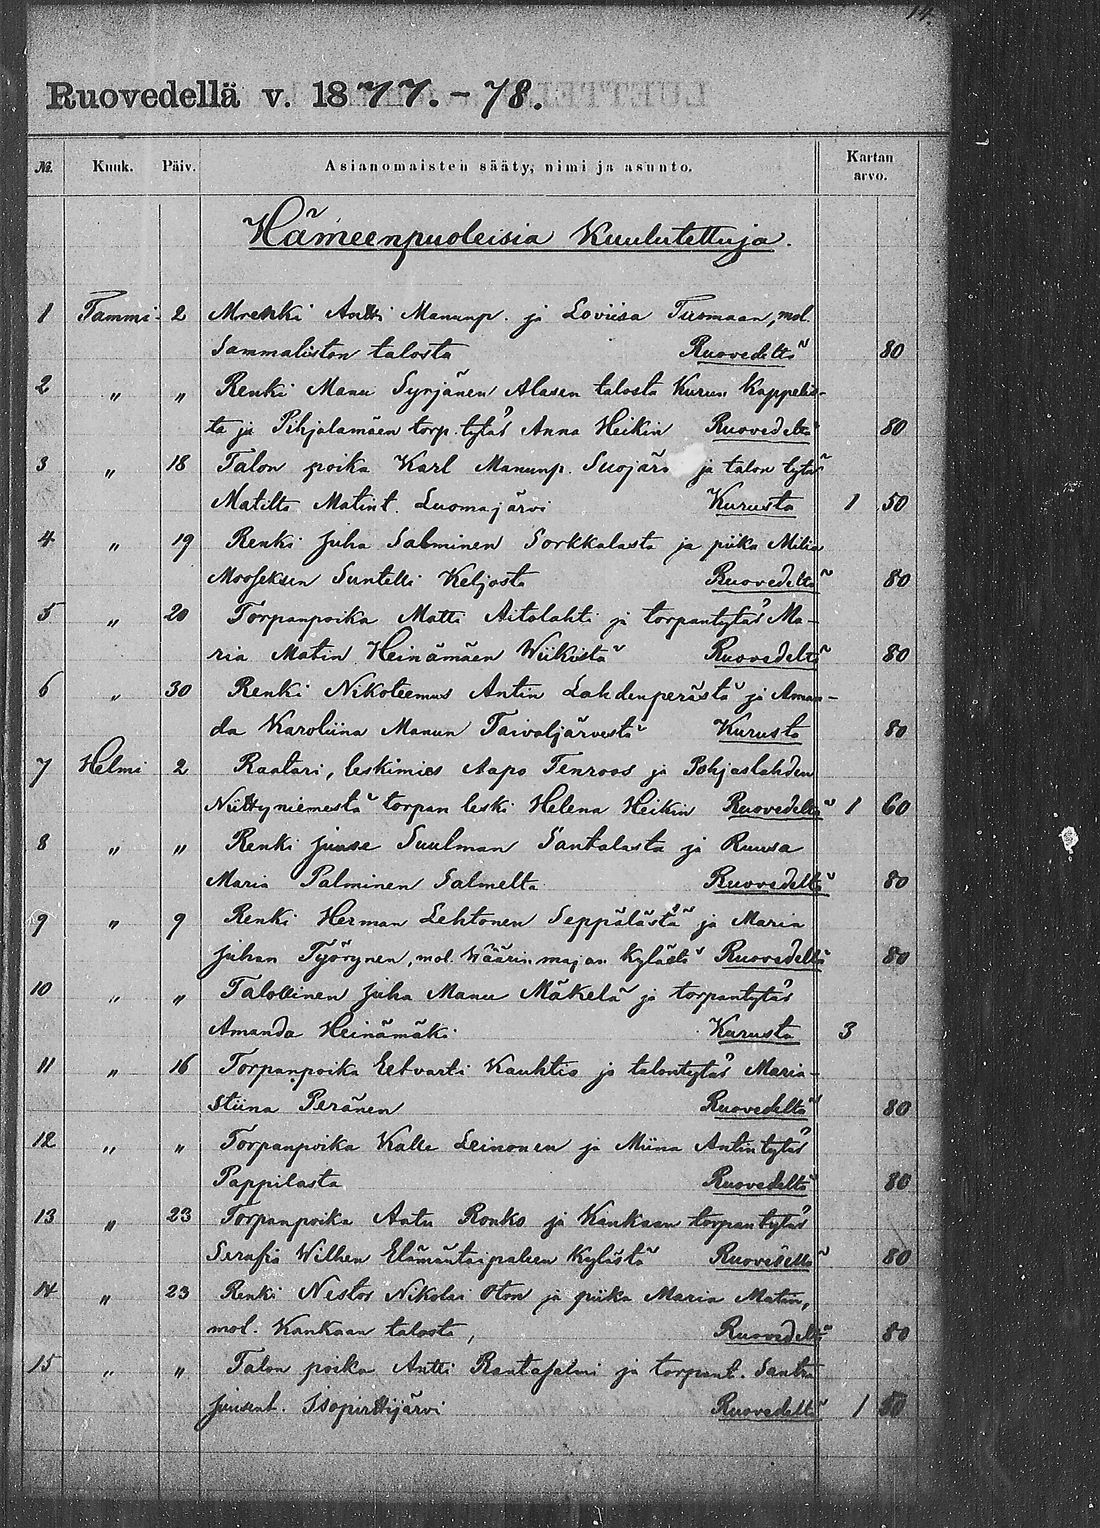 14.
Ruovedellä v. 1877.-78.
№. Kuuk. Päiv. Asianomaisten sääty, nimi ja asunto. Kartan arvo.
Hämeenpuoleisia Kuulutettuja.
1 Tammi- 2 Mrenki Antti Manunp. ja Loviisa Tuomaan, mol.
Sammaliston talosta Ruovedeltä 80
2 " " Renki Manu Syrjänen Alasen talosta Kurun Kappelis-
ta ja Pihjalamäen torp. tytär Anna Heikin Ruovedeltä 80
3 " 18 Talon poika Karl Manunp. Suojärvi ja talon tytär
Matilta Matint. Luomajärvi Kurusta 1 50
4 " 19 Renki Juha Salminen Sorkkalasta ja piika Milia
Mooseksen Suntelli Keljosta Ruovedeltä 80
5 " 20 Torpanpoika Matti Aitolahti ja torpantytär Ma-
ria Matin Heinämäen Wiikistä Ruovedeltä 80
6 " 30 Renki Nikoteemus Antin Lahdenperästä ja Aman-
da Karoliina Manun Taivaljärvestä Kurusta 80
7 Helmi 2 Raatari, leskimies Aapo Tenroos ja Pohjaslahden
Niittyniemestä torpan leski Helena Heikin Ruovedeltä 1 60
8 " " Renki Juuse Suulman Santalasta ja Ruusa
Maria Palminen Salmelta Ruovedeltä 80
9 " 9 Renki Herman Lehtonen Seppälästä ja Maria
Juhan Työrynen, mol. Wäärinmajan Kylästä Ruovedeltä 80
10 " " Talollinen Juha Manu Mäkelä ja torpantytär
Amanda Heinämäki Kurusta 3
11 " 16 Torpanpoika Eetvarti Kauhtio ja talontytär Maria-
stiina Peränen Ruovedeltä 80
12 " " Torpanpoika Kalle Leinonen ja Miina Antintytär
Pappilasta Ruovedeltä 80
13 " 23 Torpanpoika Aatu Ronko ja Kankaan torpantytär
Serafia Wilhen Elämäntaipaleen Kylästä Ruovedeltä 80
14 " 23 Renki Nestor Nikolai Oton ja piika Maria Matin,
mol. Kankaan talosta, Ruovedeltä 80
15 " " Talon poika Antti Rantasalmi ja torpant. Santra
Juusent. Isopirttijärvi Ruovedeltä 1 50